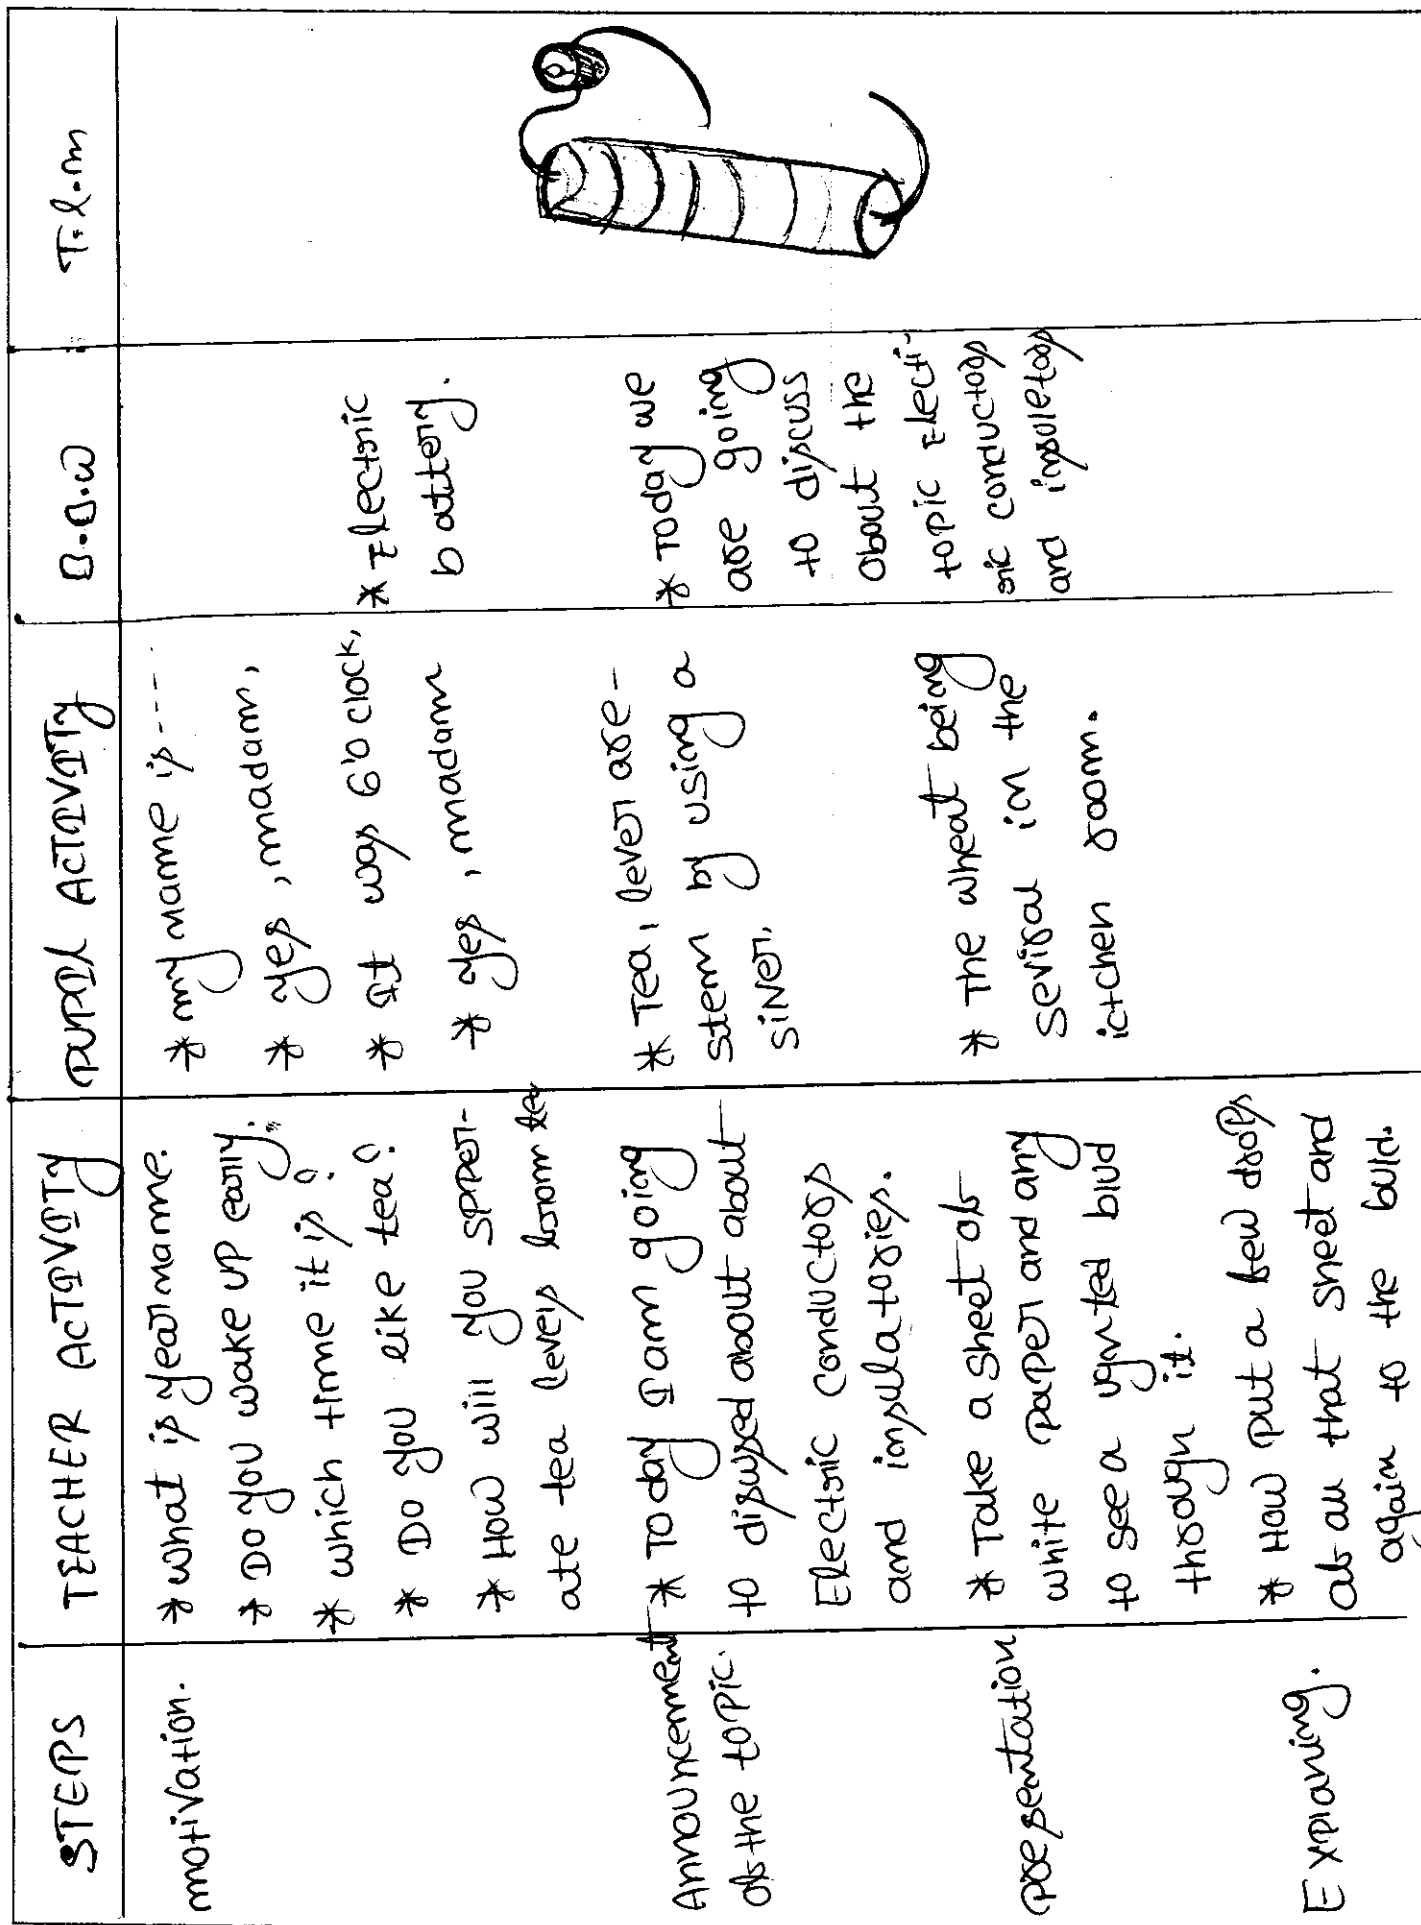 STEPS
TEACHER ACTIVITY
PUPIL ACTIVITY
B.B.W
T.l.m
motivation.
* what is yearname.
* Do you wake up early.
* which time it is?
* Do you like tea?
* How will you speri-
ate tea levels from tea
* my name is ----
* yes, madam,
* It was 6'o clock,
* yes, madam
* Tea, lever are-
stem by using a
siver.
* Electric
battery.
Announcement
of the topic.
* Today I am going
to disused about about
Electric conductors
and insulatories.
* Today we
are going
to discuss
about the
topic Electi-
ric conductors
and insuletors
presentation
* Take a sheet of
white paper and any
to see a
through it.
* The wheat being
seviral in the
ictchen room.
Explaning.
* How put a few drops
of all that sheet and
again to the build.